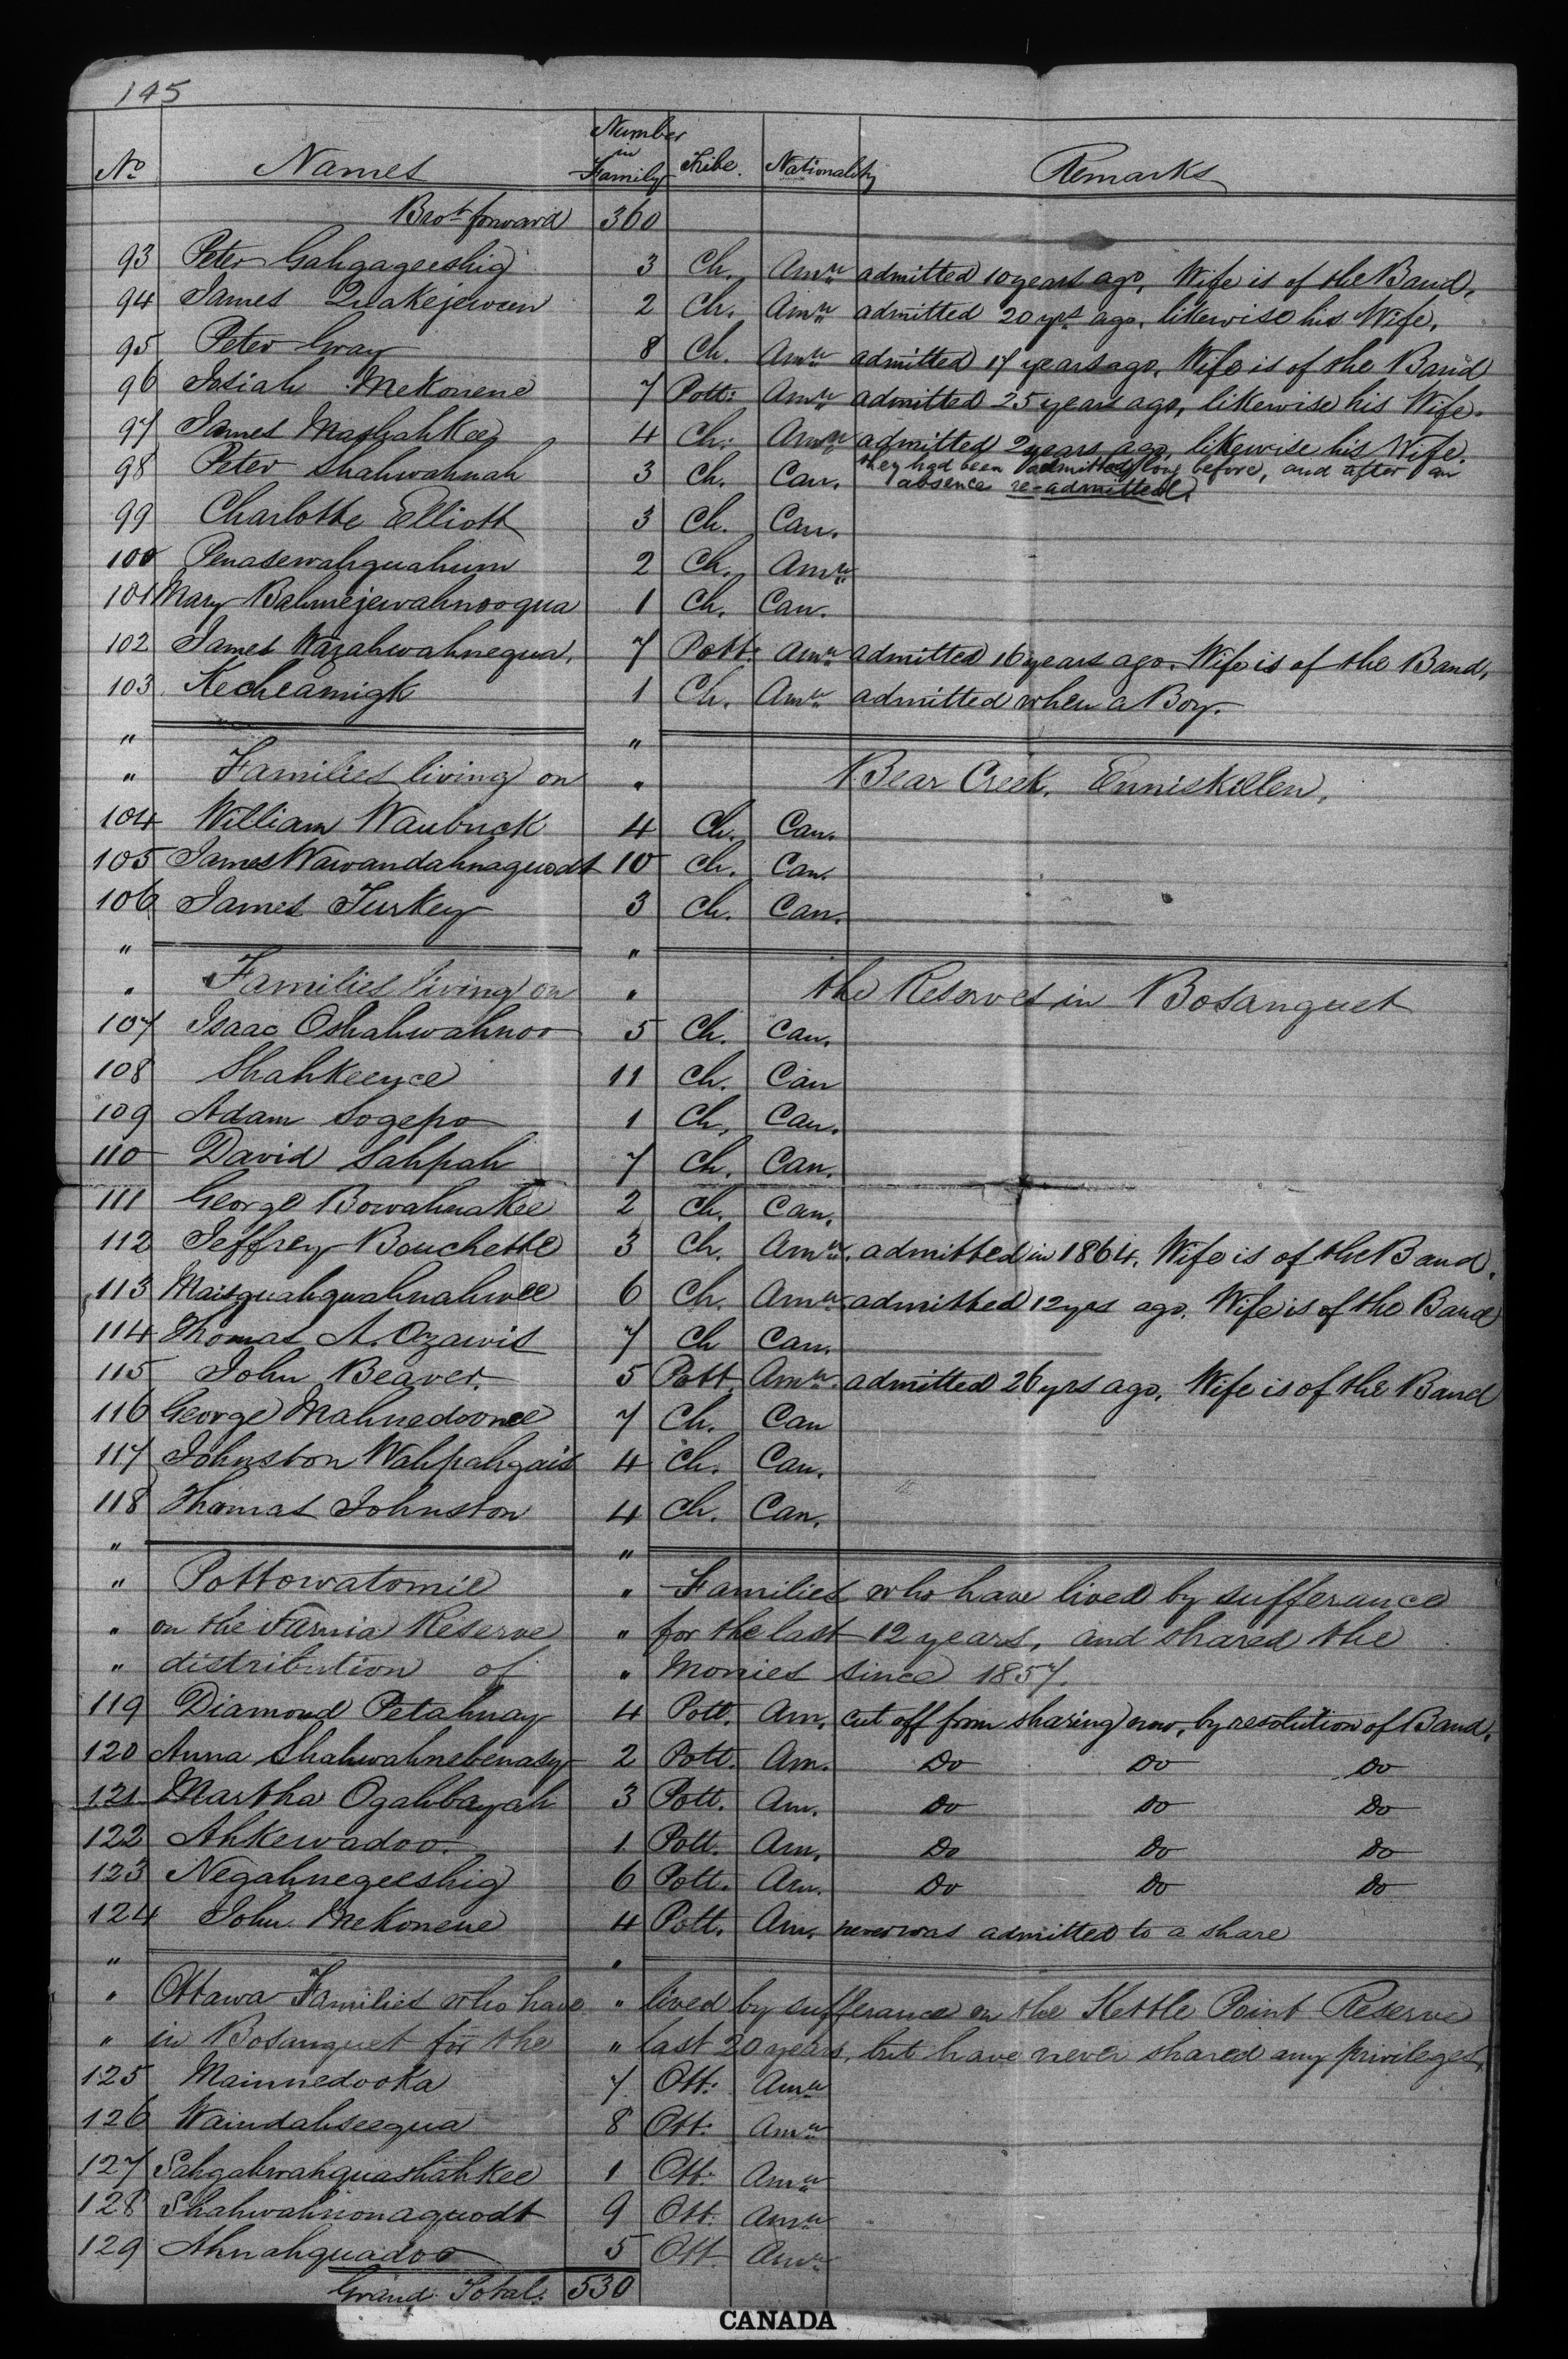 145
No Names Number in Family Tribe. Nationality Remarks
Brot forward 360
93 Peter Gahgageeshig 3 Ch. Amn admitted 10 years ago, Wife is of the Band,
94 James Quakejewun 2 Ch. Amn admitted 20 yrs ago, likewise his Wife.
95 Peter Gray 8 Ch. Amn admitted 17 years ago, Wife is of the Band
96 Josiah Mekonene 7 Pott: Amn admitted 25 years ago, likewise his Wife.
97 James Mashahkee 4 Ch: Amn admitted 2 years ago, likewise his Wife.
they had been admitted long before, and after an
98 Peter Shahwahnah 3 Ch. Can. absence re-admitted.
99 Charlotte Elliott 3 Ch. Can.
100 Penasewahquahum 2 Ch. Amn
101 Mary Bahmejewahnooqua 1 Ch. Can.
102 James Wazahwahnequa. 7 Pott: Amn admitted 16 years ago. Wife is of the Band,
103. Kecheamigk 1 Ch. Amn admitted when a Boy.
" "
" Families living on " Bear Creek, Enniskillen,
104 William Waubuck 4 Ch. Can.
105 James Wawandahnaguodt 10 Ch. Can.
106 James Turkey 3 Ch. Can.
" "
" Families living on " the Reserves in Bosanquet
107 Isaac Oshahwahnoo 5 Ch. Can.
108 Shahkeence 11 Ch. Can
109 Adam Sogepo 1 Ch, Can.
110 David Sahpah 7 Ch. Can.
111 George Bowahnakee 2 Ch. Can.
112 Jeffrey Bouchette 3 Ch. Amn. admitted in 1864. Wife is of the Band.
113 Maisquahquahnahwee 6 Ch. Amn admitted 12 yrs ago. Wife is of the Band
114 Thomas A. Ozawis 7 Ch Can.
115 John Beaver. 5 Pott. Amn. admitted 26 yrs ago, Wife is of the Band
116 George Mahnedoonce 7 Ch. Can
117 Johnston Wahpahgais 4 Ch. Can.
118 Thomas Johnston 4 Ch. Can.
" "
" Pottowatomie " Families who have lived by sufferance
" on the Sarnia Reserve " for the last 12 years, and shared the
" distribution of " Monies since 1857.
119 Diamond Petahnay 4 Pott. Am. cut off from sharing now, by resolution of Band.
120 Anna Shahwahnebenasy 2 Pott. Am. Do Do Do
121 Martha Ogahbayah 3 Pott. Am. Do Do Do
122 Ahkewadoo. 1 Pott. Am. Do Do Do
123 Negahnegeeshig 6 Pott. Am. Do Do Do
124 John Mekonene 4 Pott. Am. never was admitted to a share
" "
" Ottawa Families who have " lived by sufferance on the Kettle Point Reserve
" in Bosanquet for the " last 20 years, but have never shared any privileges,
125 Mainnedooka 7 Ott: Amn
126 Waindahseequa 8 Ott: Amn
127 Sahgahwahquashahkee 1 Ott: Amn
128 Shahwahnonaquodt 9 Ott: Amn
129 Ahnahquadoo 5 Ott. Amn
Grand Total. 530
CANADA